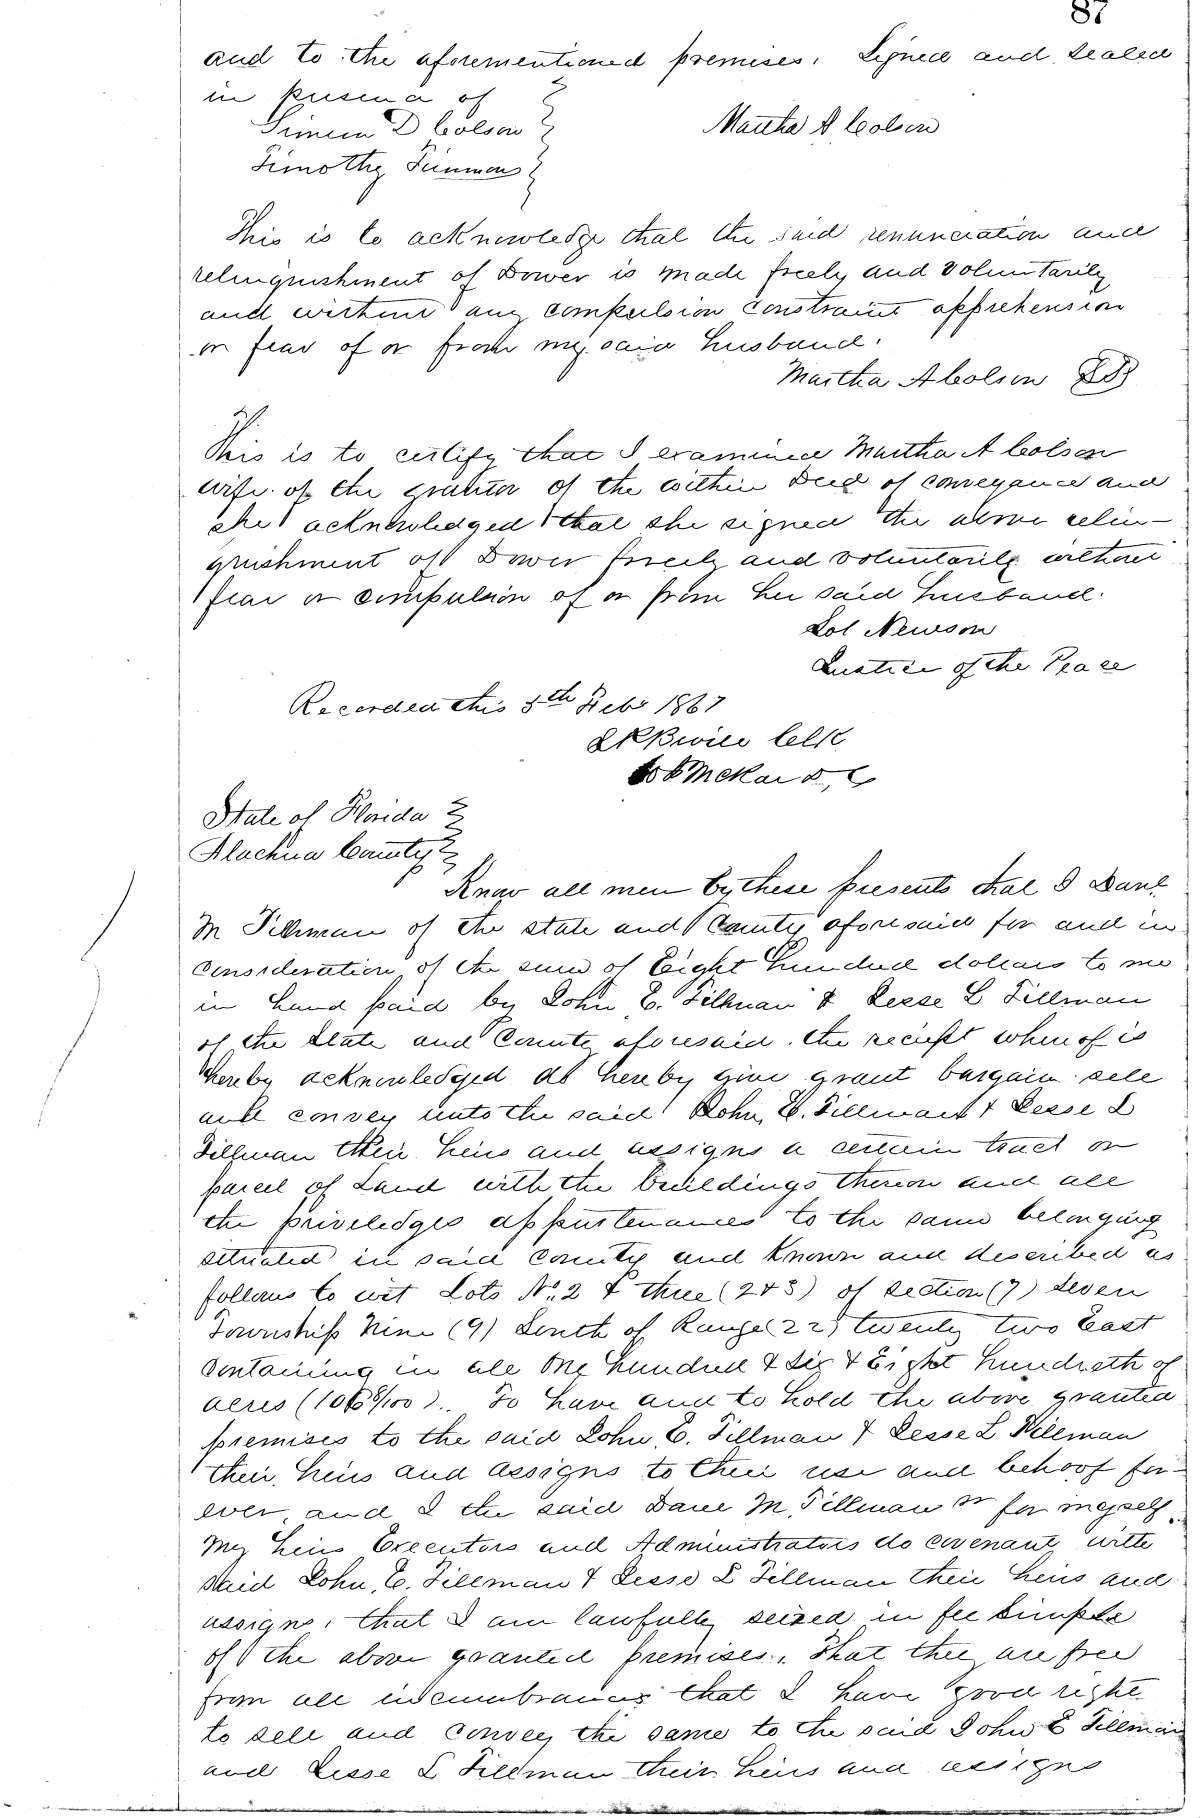 87
and to the aforementioned premises. Signed and sealed
in presence of
Simeon D Colson
Martha A Colson
Timothy Timmons
This is to acknowledge that the said renunciation and
relinquishment of Dower is made freely and voluntarily
and without any compulsion constraint apprehension
or fear of or from my said husband.
Martha A Colson
This is to certify that I examined Martha A Colson
wife of the grantor of the within Deed of conveyance and
she acknowledged that she signed the above relin-
quishment of Dower freely and voluntarily without
fear or compulsion of or from her said husband.
Sol Newson
Justice of the Peace
Recorded this 5th Feby 1867
Clk
State of Florida
Alachua County
Know all men by these presents that I Danl
M Tillman of the state and County aforesaid for and in
consideration of the sum of Eight hundred dollars to me
in hand paid by John E. Tillman & Jesse L Tillman
of the State and County aforesaid. the reciept whereof is
hereby acknowledged do hereby give grant bargain sell
and convey unto the said John E. Tillman & Jesse L
Tillman their heirs and assigns a certain tract or
parcel of Land with the buildings thereon and all
the priviledges appurtenances to the same belonging
situated in said County and Known and described as
follows to wit Lots No. 2 & three (2&3) of Section (7) Seven
Township Nine (9) South of Range (22) twenty two East
Containing in all One hundred & Six & Eight hundreth of
acres (106 8/100).. To have and to hold the above granted
premises to the said John E. Tillman & Jesse L Tillman
their heirs and assigns to their use and behoof for-
ever, and I the said Danl M. Tillman Sr for myself
my heirs Executors and Administrators do covenant with
said John E. Tillman & Jesse L Tillman their heirs and
assigns, that I am lawfully seized in fee Simple
of the above granted premises, That they are free
from all incumbrances that I have good right
to sell and convey the same to the said John E Tillman
and Jesse L Tillman their heirs and assigns